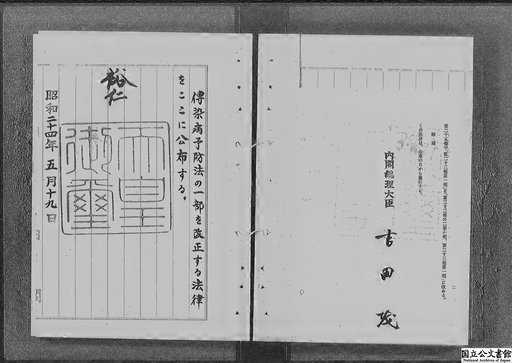 傳染病予防法の一部を改正する法律
をここに公布する。
裕仁
天皇
御璽
昭和二十四年五月十九日
内閣総理大臣
吉田茂
国立公文書館
National Archives of Japan